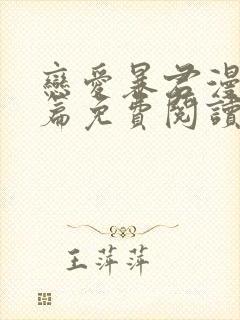 戀愛暴君漫
篇免費閱讀
王萍萍